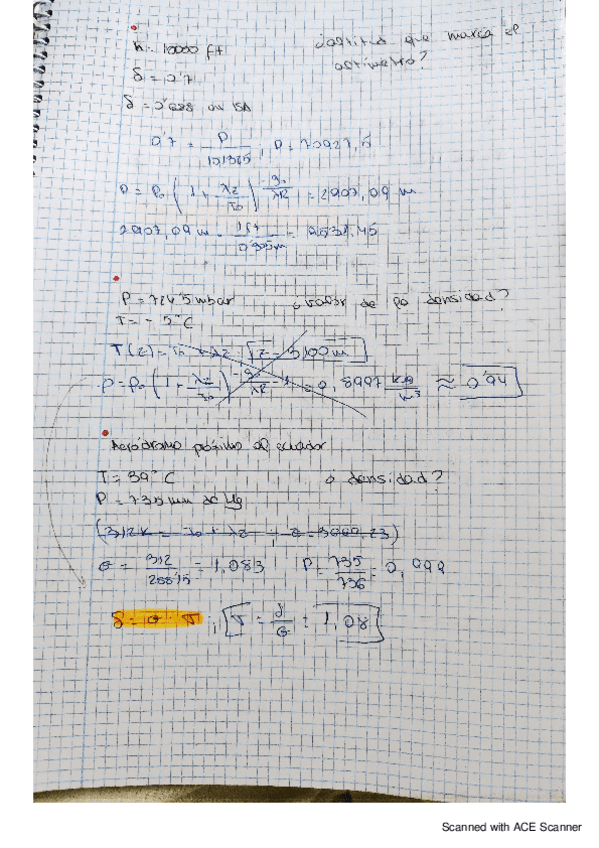 h = 10000 ft ¿altitud que marca el
altímetro?
δ = 0'7
δ = 0'688 en ISA
0'7 = P / 101325 ; P = 70927,5
P = P₀ (1 + λz/T₀)^(-g₀/λR) = 2907,09 m
2907,09 m · 1 ft / 0'305 m = 9531,45
P = 724'5 mbar ¿valor de la densidad?
T = - 5°C
T(z) = T₀ + λz z = 3100 m
ρ = ρ₀ (1 + λz/T₀)^(-g₀/λR - 1) = 0,8997 kg/m³ ≈ 0'94
Aeródromo próximo al ecuador
T = 39°C ¿densidad?
P = 735 mm de Hg
(312K = T₀ + λz
θ = 312 / 288'15 = 1,083 P = 735 / 736 = 0,999
δ = θ · σ ; σ = δ / θ = 1,08
Scanned with ACE Scanner